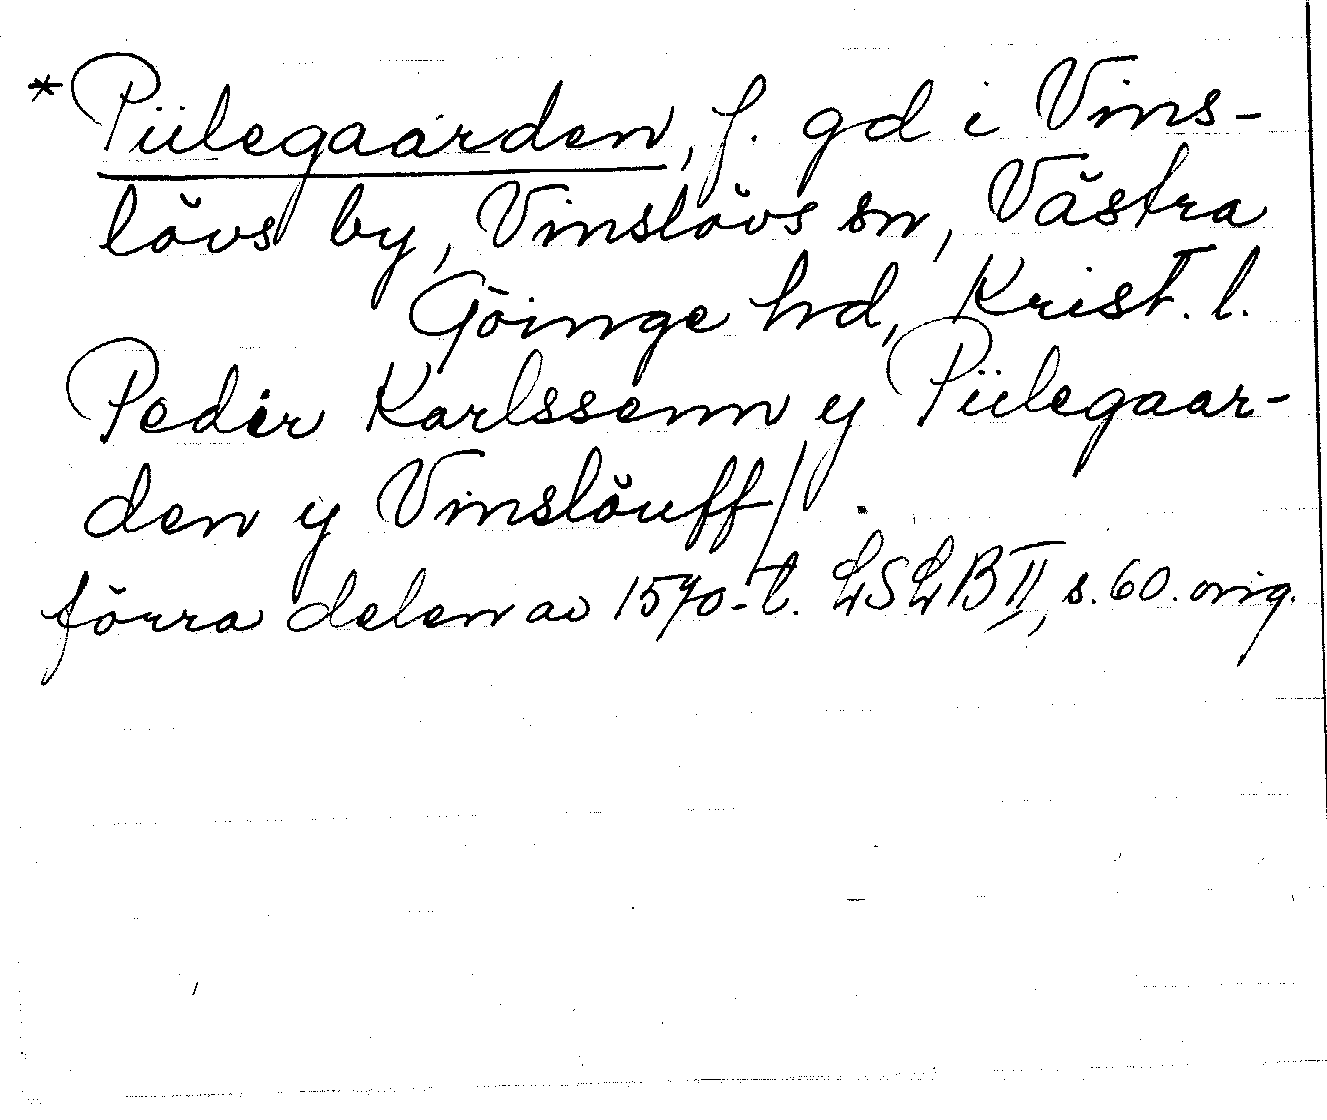 *Piilegaarden, f. gd i Vins-
lövs by, Vinslövs sn, Västra
Göinge hd, Krist. l.
Peder Karlssenn y Piilegaar-
den y Vinslöuff/.
förra delen av 1570-t. LSLB II, s. 60. orig.